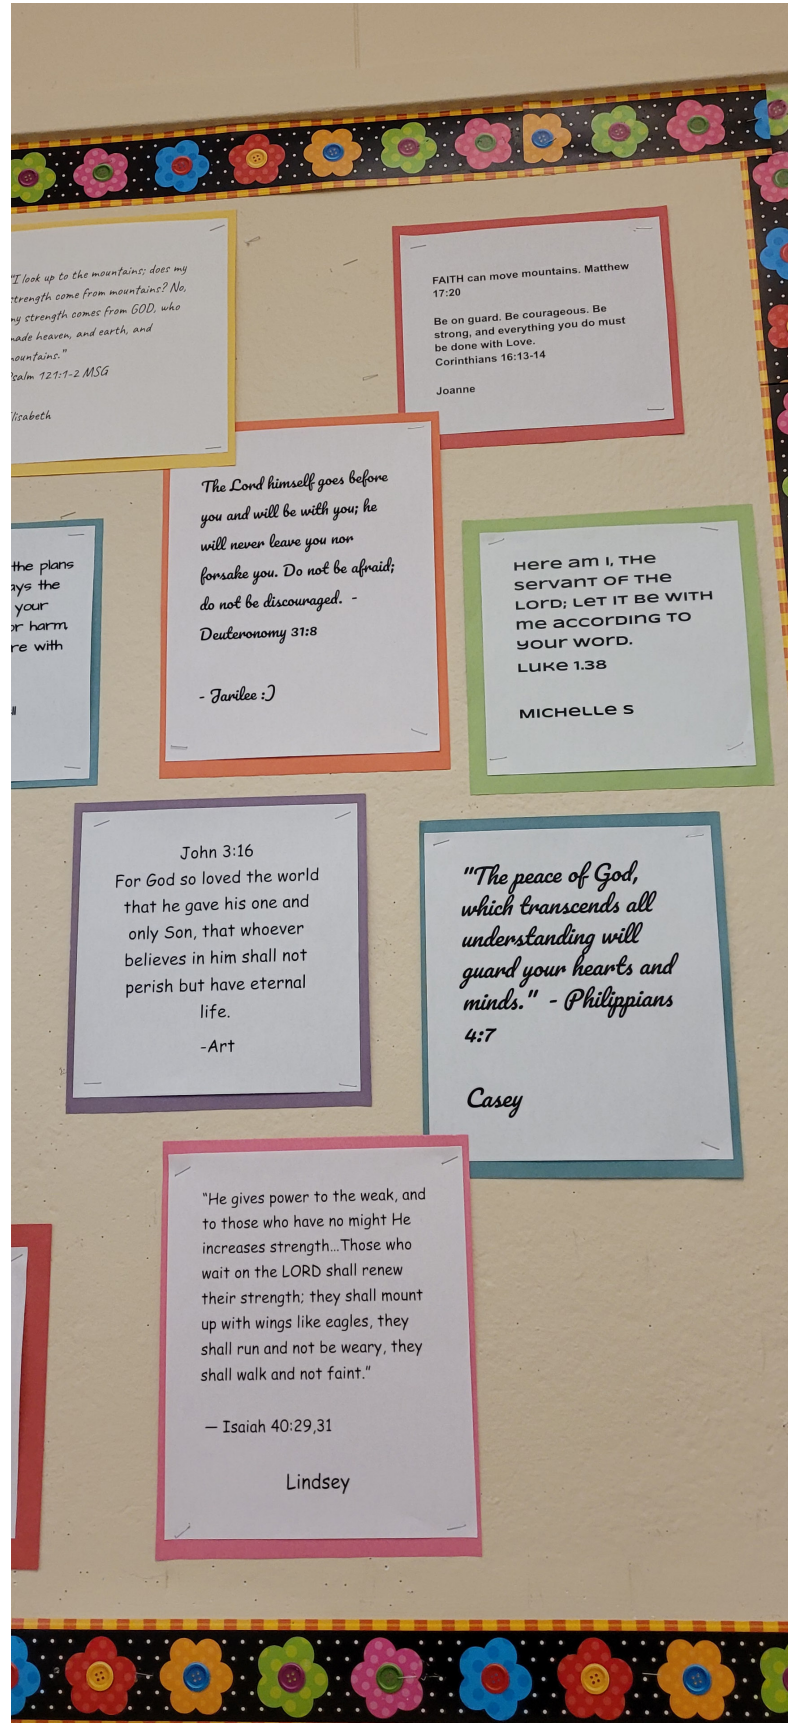 "I look up to the mountains; does my
strength come from mountains? No,
my strength comes from GOD, who
made heaven, and earth, and
mountains."
Psalm 121:1-2 MSG
Elisabeth
FAITH can move mountains. Matthew
17:20
Be on guard. Be courageous. Be
strong, and everything you do must
be done with Love.
Corinthians 16:13-14
Joanne
The Lord himself goes before
you and will be with you; he
will never leave you nor
forsake you. Do not be afraid;
do not be discouraged. -
Deuteronomy 31:8
- Jarilee :)
the plans
ays the
your
or harm,
re with
Here am I, THE
servant of THE
LORD; Let it be WITH
me according to
your word.
Luke 1.38
Michelle S
John 3:16
For God so loved the world
that he gave his one and
only Son, that whoever
believes in him shall not
perish but have eternal
life.
-Art
"The peace of God,
which transcends all
understanding will
guard your hearts and
minds." - Philippians
4:7
Casey
"He gives power to the weak, and
to those who have no might He
increases strength...Those who
wait on the LORD shall renew
their strength; they shall mount
up with wings like eagles, they
shall run and not be weary, they
shall walk and not faint."
— Isaiah 40:29,31
Lindsey